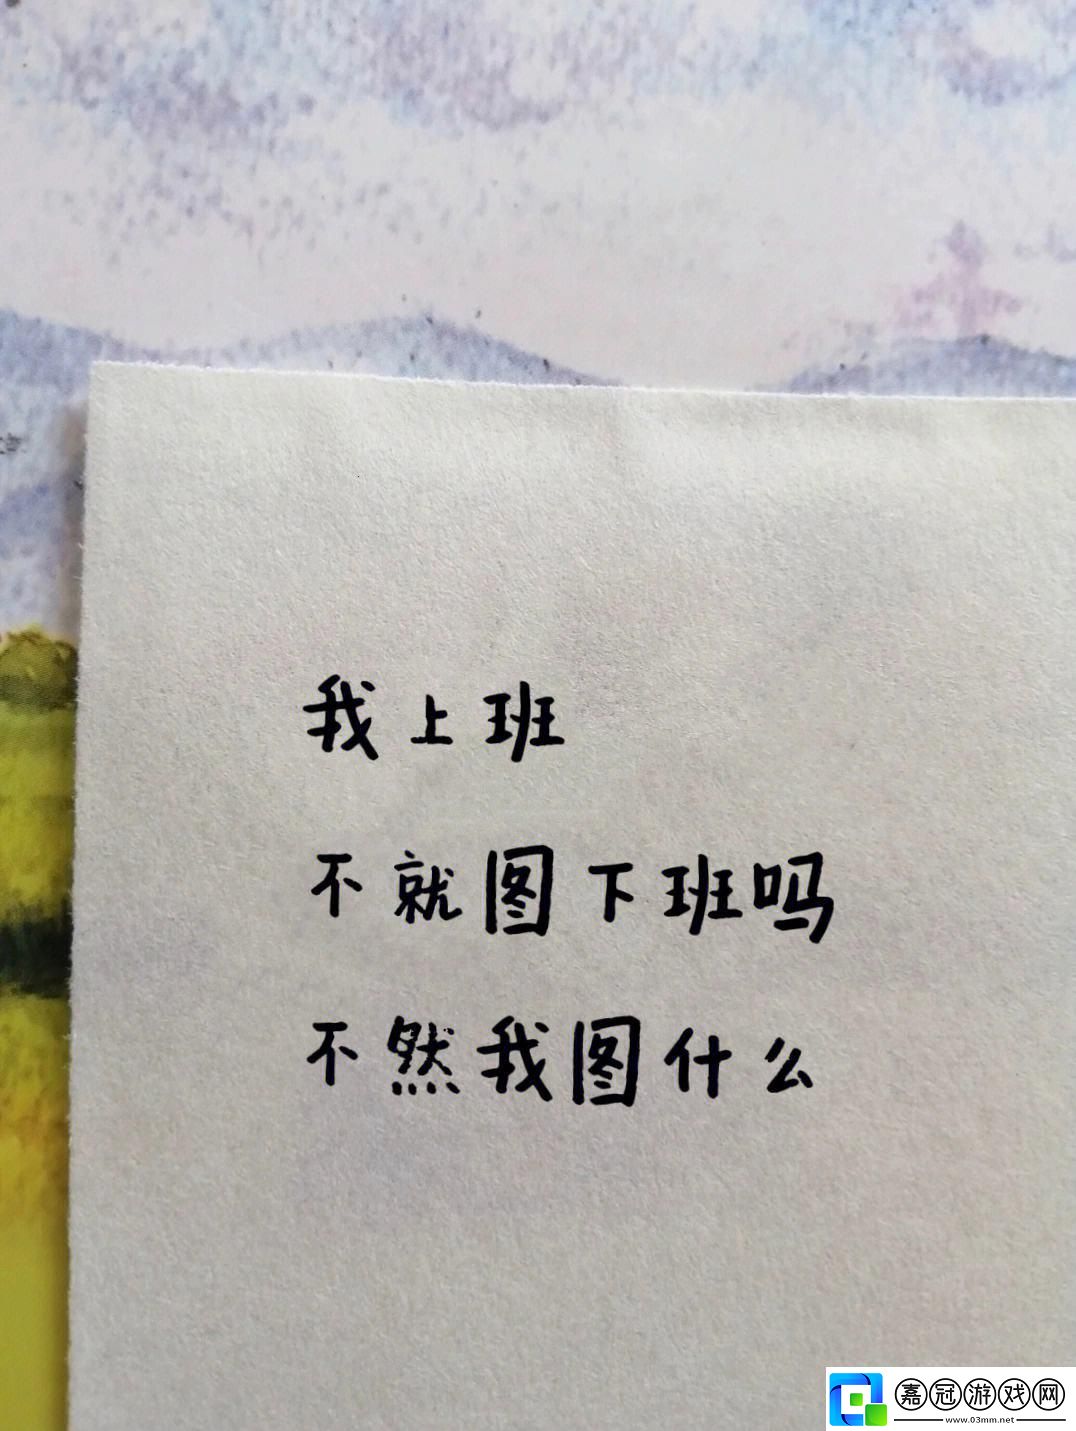 我上班
不就图下班吗
不然我图什么
嘉冠游戏网
www.03mm.net